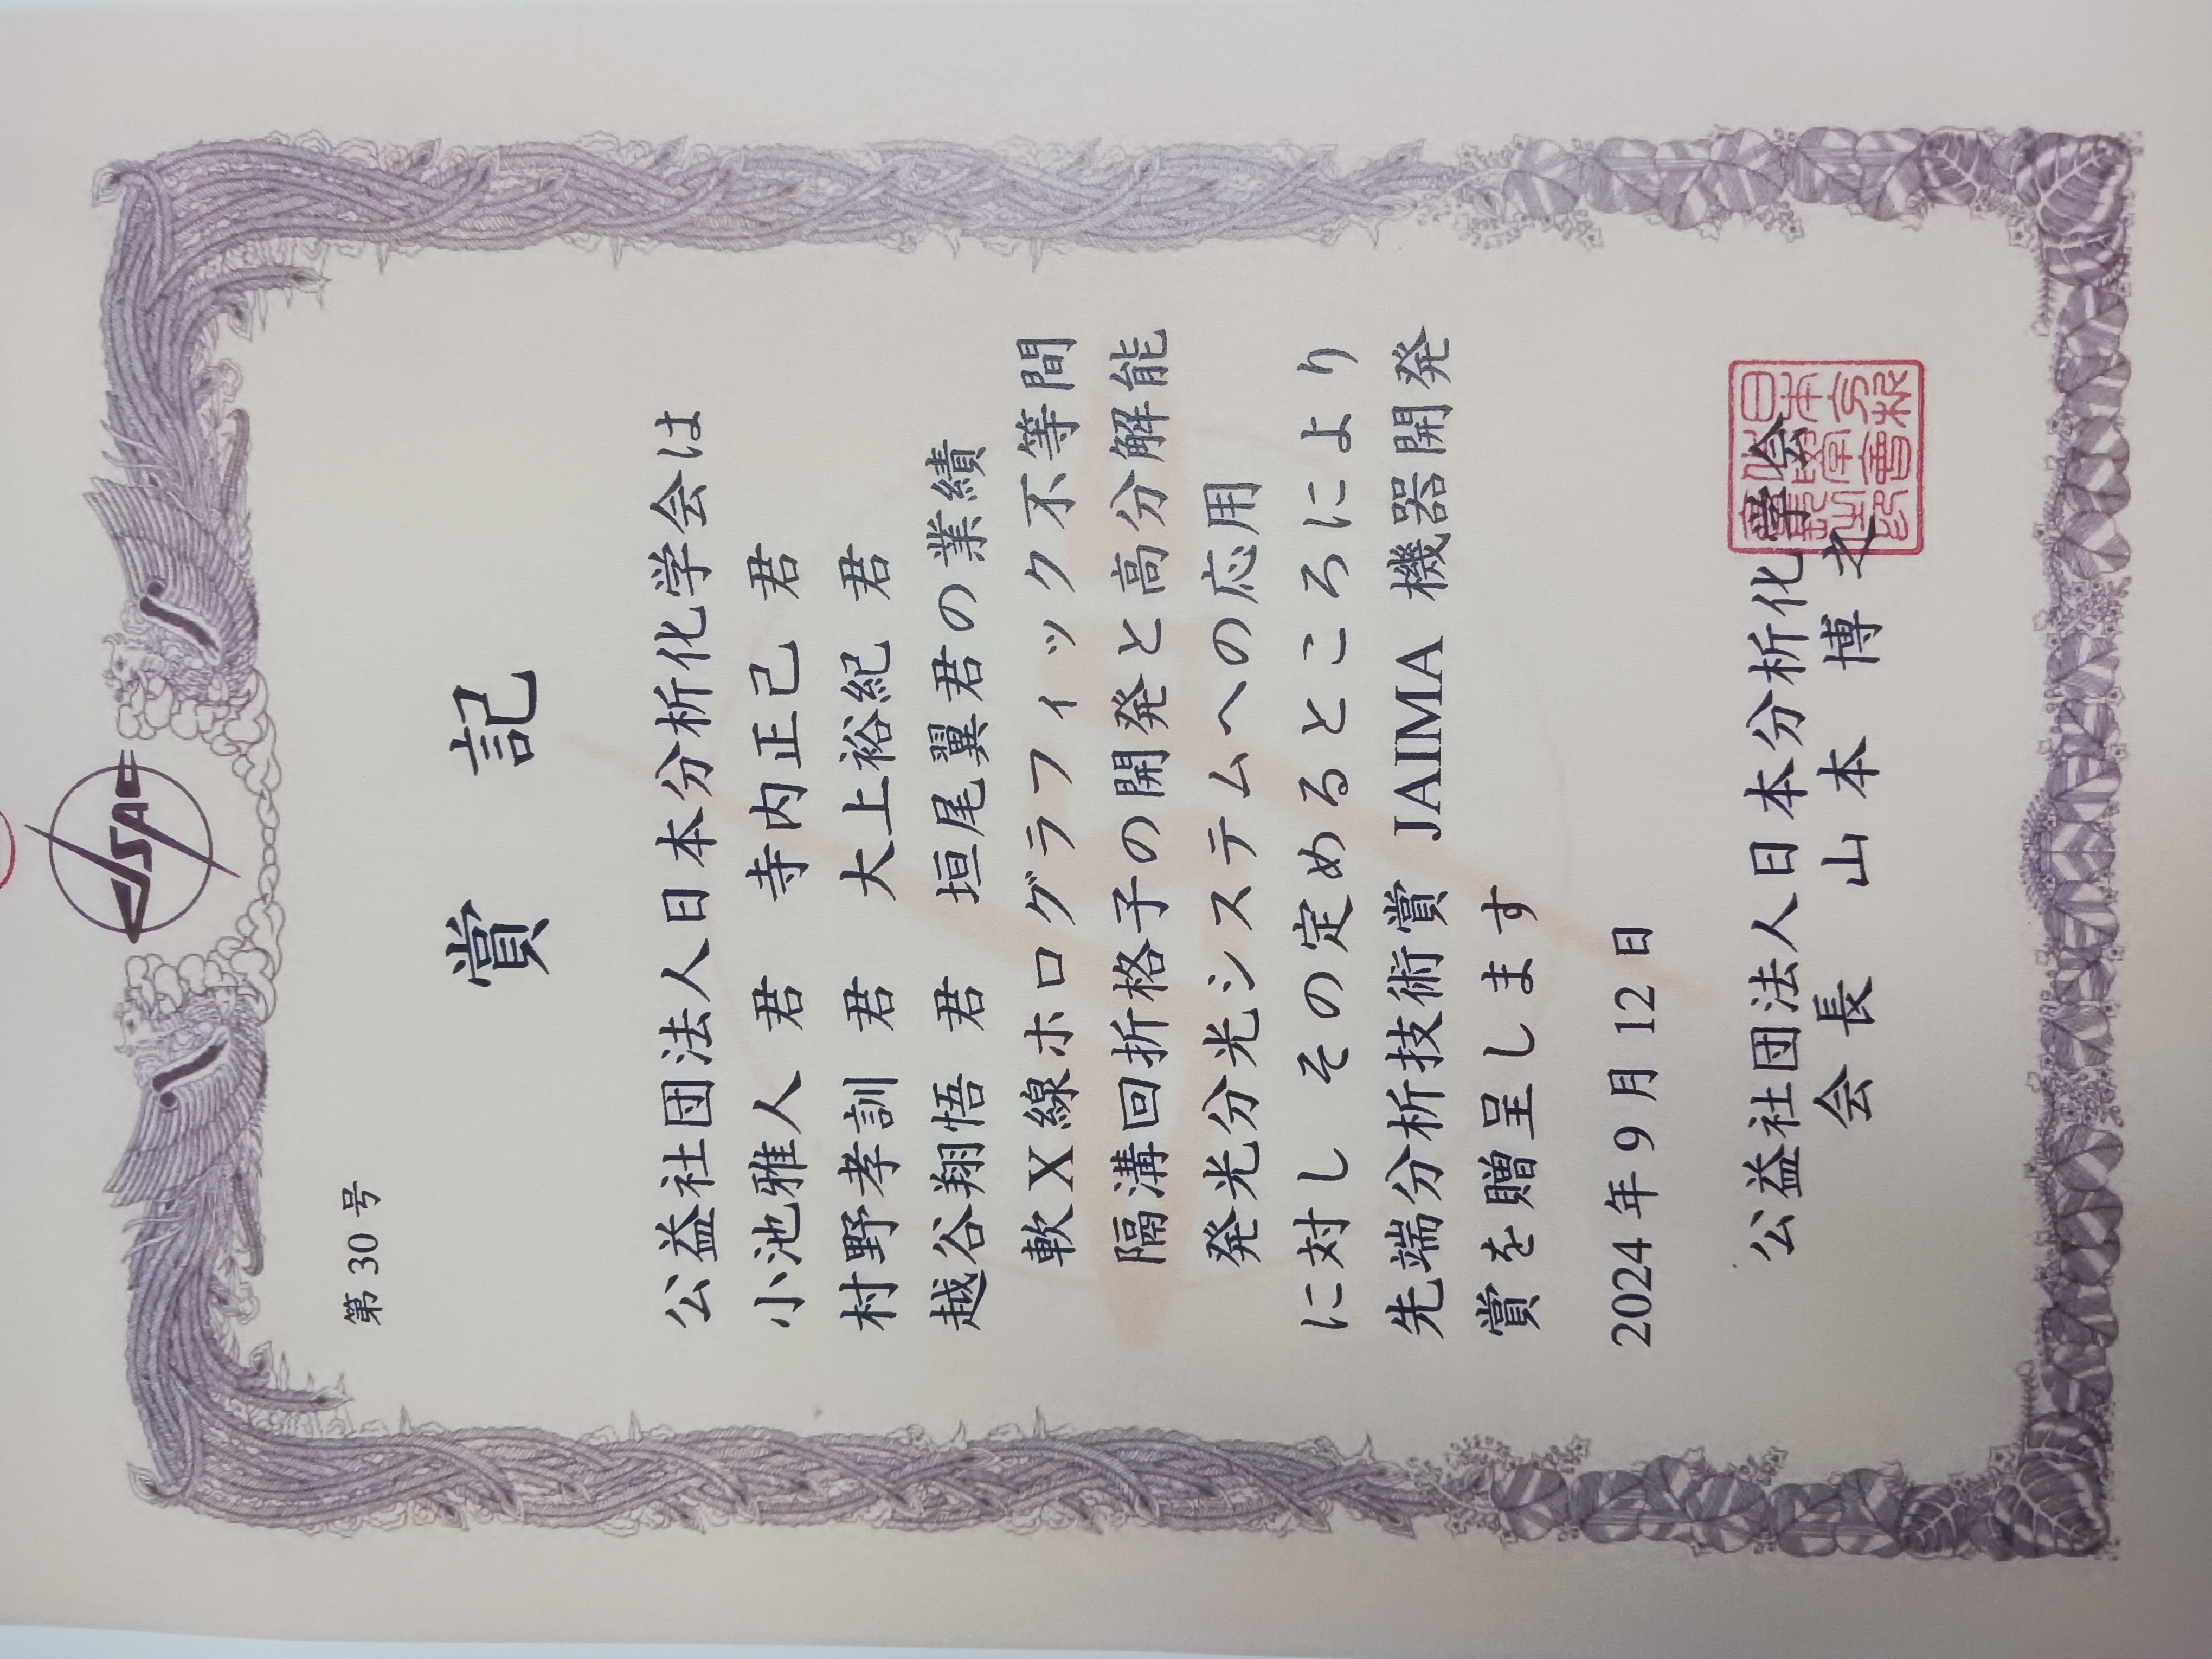 JSAC
第30号
賞 記
公益社団法人日本分析化学会は
小池雅人 君 寺内正己 君
村野孝訓 君 大上裕紀 君
越谷翔悟 君 垣尾翼君の業績
軟X線ホログラフィック不等間
隔溝回折格子の開発と高分解能
発光分光システムへの応用
に対し その定めるところにより
先端分析技術賞 JAIMA 機器開発
賞を贈呈します
2024年9月12日
公益社団法人日本分析化学会
会長 山本博之